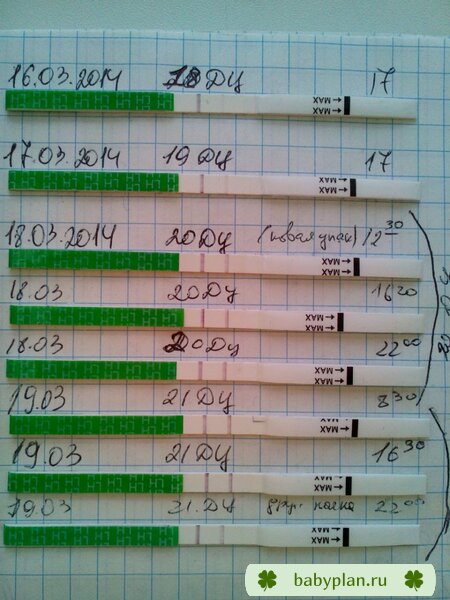 16.03.2014 18 ДЦ 17
MAX
17.03.2014 19 ДЦ 17
MAX
18.03.2014 20 ДЦ (новая упак) 12 30
MAX
18.03 20 ДЦ 16 20
MAX
18.03 20 ДЦ 22 00
MAX
19.03 21 ДЦ 8 30
MAX
19.03 21 ДЦ 16 30
MAX
19.03 21 ДЦ пачка 22 00
MAX
babyplan.ru